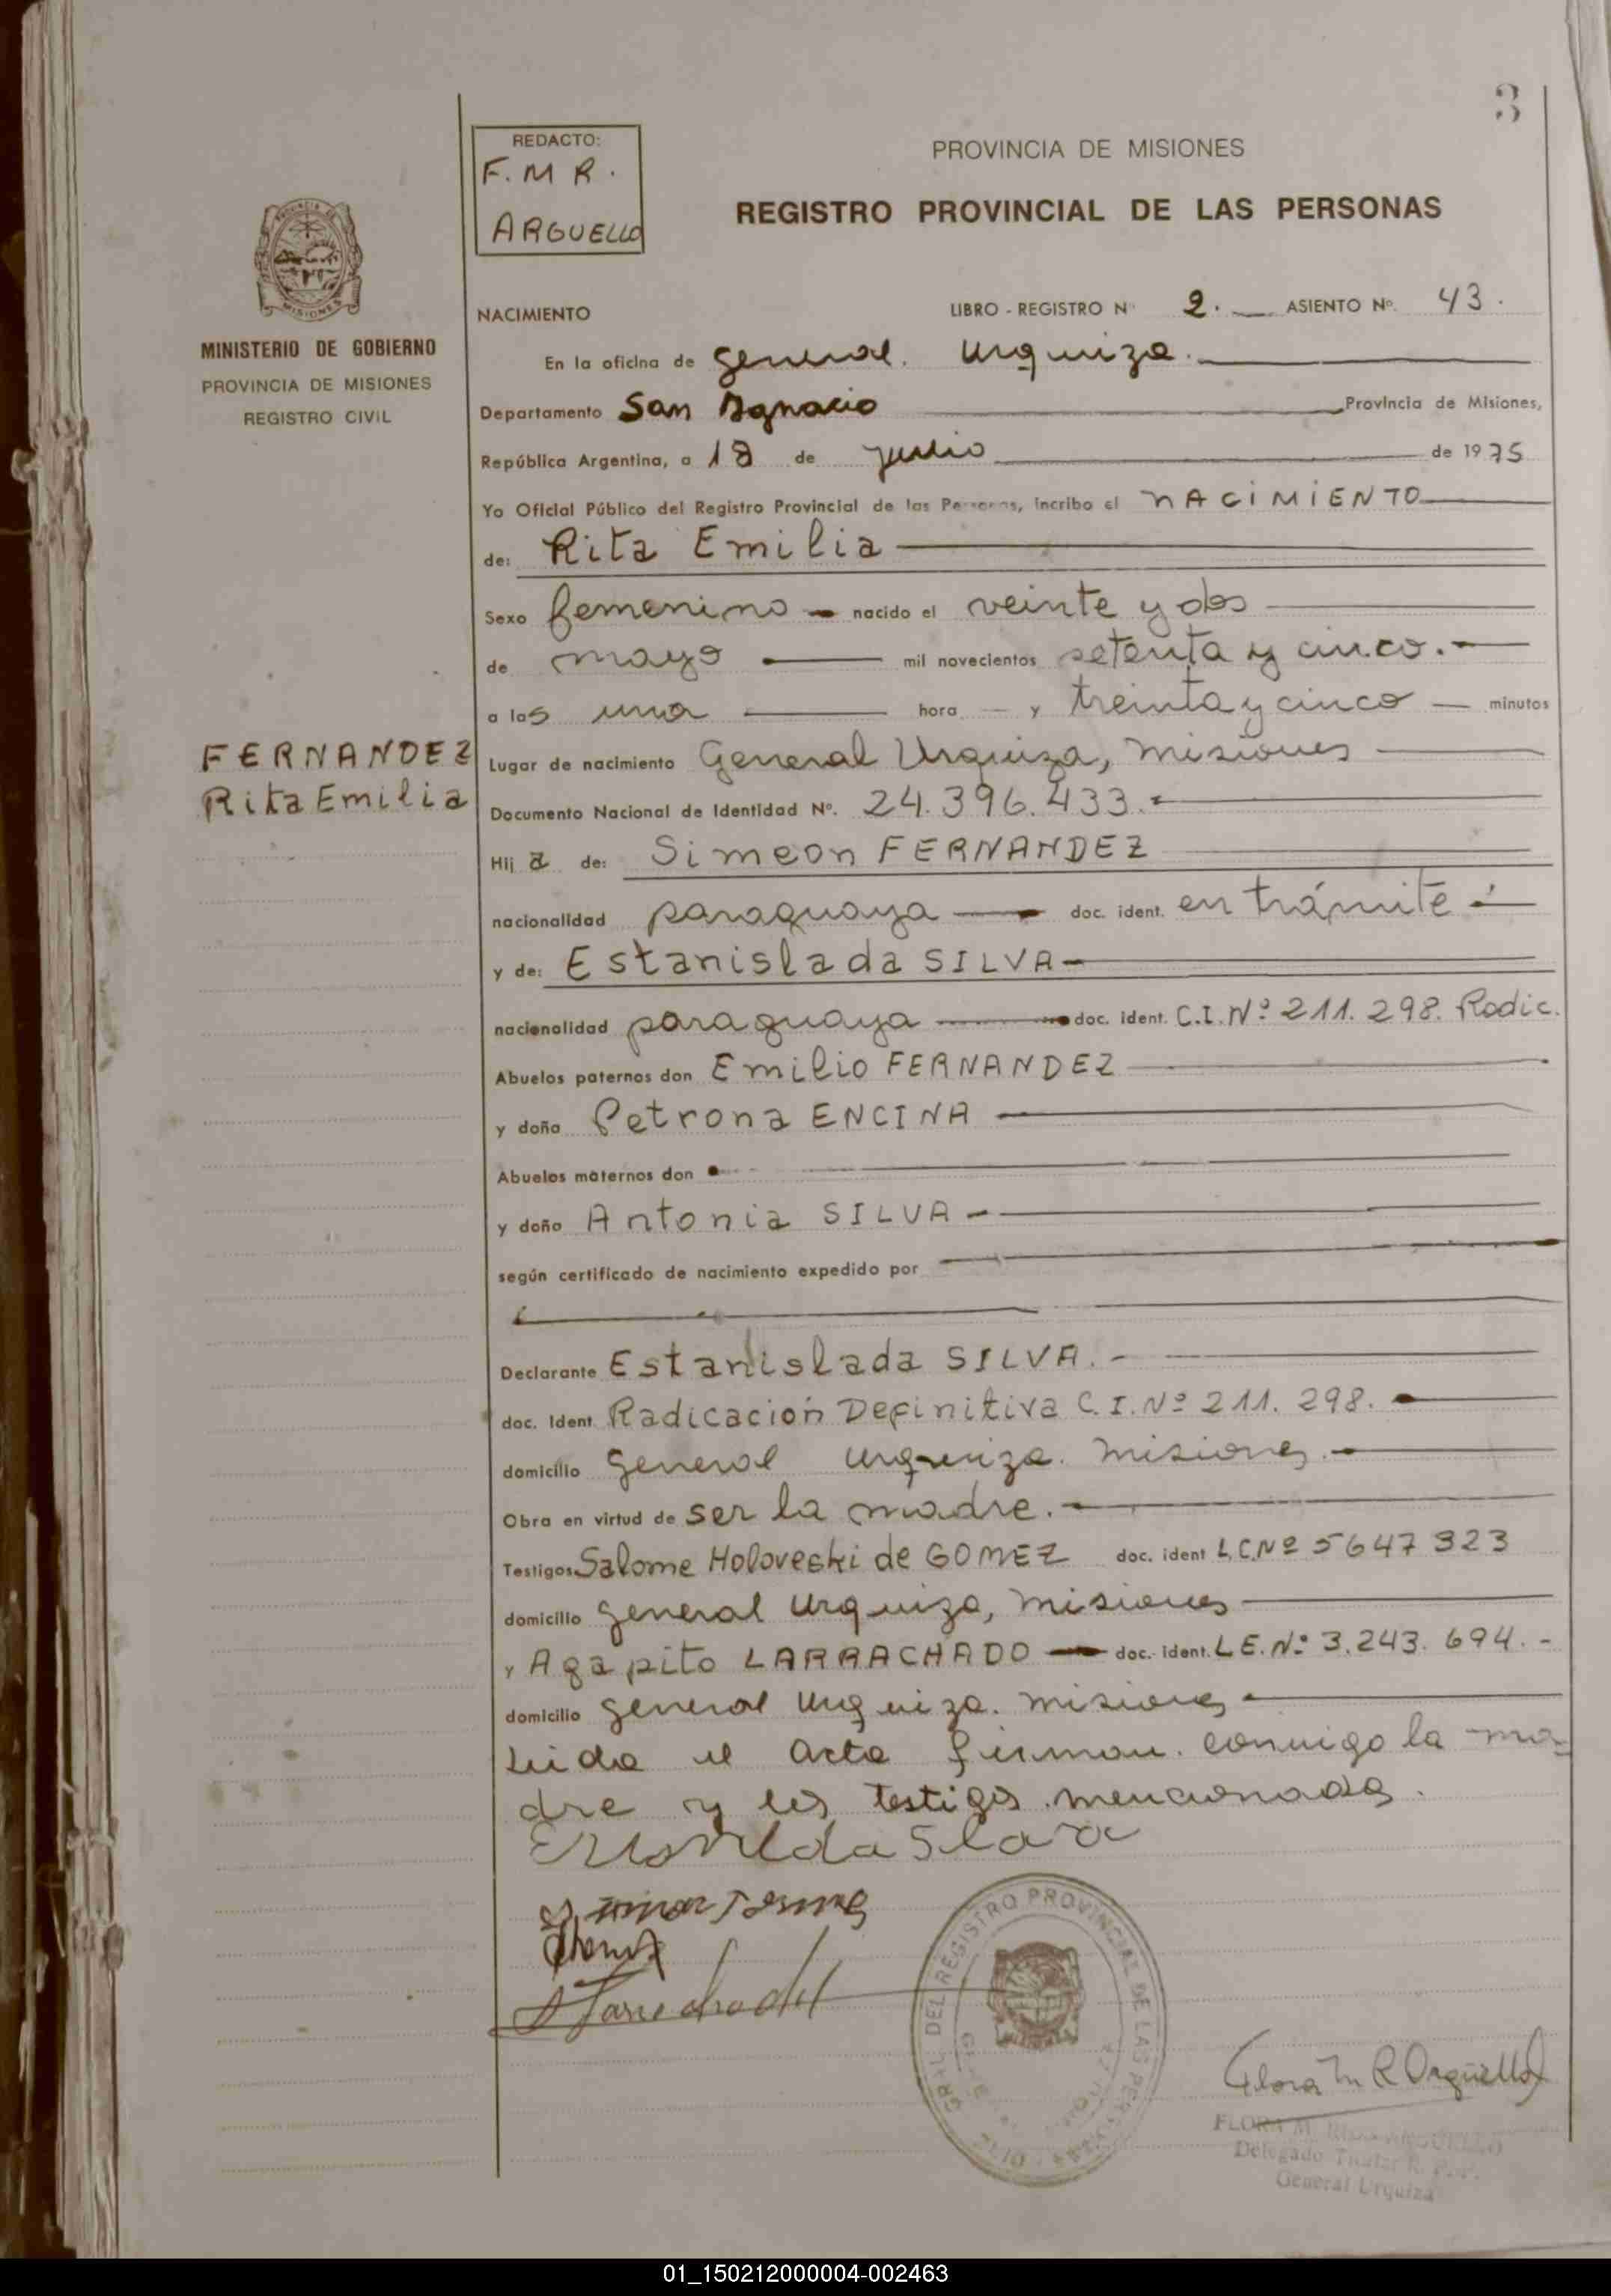 3
REDACTO:
F. M R.
ARGUELLO
PROVINCIA DE MISIONES
REGISTRO PROVINCIAL DE LAS PERSONAS
MISIONES
MINISTERIO DE GOBIERNO
PROVINCIA DE MISIONES
REGISTRO CIVIL
NACIMIENTO LIBRO - REGISTRO Nº 2. ASIENTO Nº. 43.
En la oficina de General. Urquiza.
Departamento San Ignacio Provincia de Misiones,
República Argentina, a 18 de de 1975
Yo Oficial Público del Registro Provincial de las Personas, incribo el NACIMIENTO
de: Rita Emilia
Sexo femenino nacido el veinte y dos
de mayo mil novecientos setenta y cinco.
a las una hora y treinta y cinco minutos
FERNANDEZ
Rita Emilia
Lugar de nacimiento General Urquiza, Misiones
Documento Nacional de Identidad Nº. 24.396.433.
Hij a de: Simeon FERNANDEZ
nacionalidad paraguaya doc. ident. en trámite
y de: Estanislada SILVA
nacionalidad paraguaya doc. ident. C.I. Nº 211.298. Radic.
Abuelos paternos don Emilio FERNANDEZ
y doña Petrona ENCINA
Abuelos maternos don
y doña Antonia SILVA
según certificado de nacimiento expedido por
Declarante Estanislada SILVA.
doc. Ident Radicación Definitiva C.I. Nº 211.298.
domicilio General Urquiza. Misiones.
Obra en virtud de ser la madre.
Testigos Salome Holoveski de GOMEZ doc. ident L.C.Nº 5647323
domicilio General Urquiza, Misiones
y Agapito LARRACHADO doc. ident. L.E. Nº 3.243.694.
domicilio General Urquiza. Misiones
Leida el Acta firman. conmigo la ma-
dre y los testigos mencionados.
GRAL. DEL REGISTRO PROVINCIAL DE LAS PERSONAS
Flora M R Argüello
FLORA M. ARGUELLO
Delegado Titular R. P. P.
General Urquiza
01_150212000004-002463